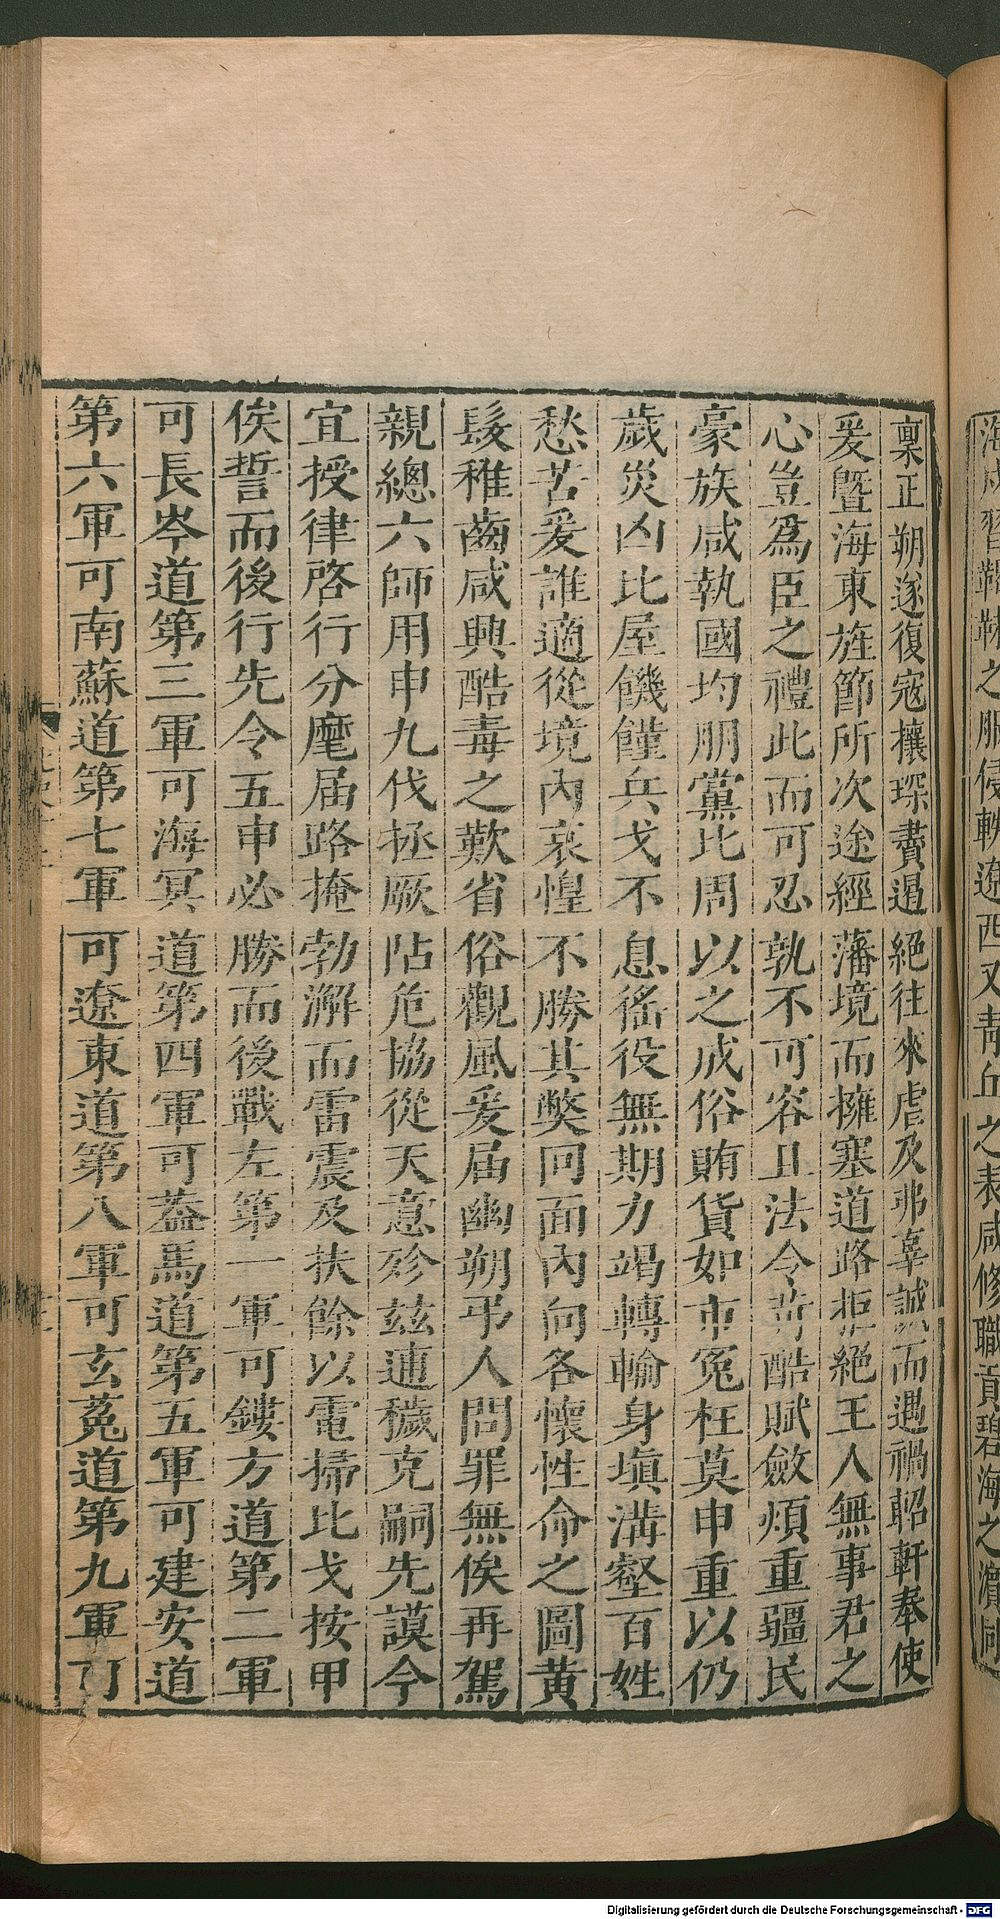 海之濵同
稟正朔遂復寇攘琛賮遏絕往來虐及弗辜誠而遇禍軺軒奉使
爰曁海東旌節所次途經藩境而擁塞道路拒絕王人無事君之
心豈爲臣之禮此而可忍孰不可容且法令苛酷賦斂煩重疆民
豪族咸執國均朋黨比周以之成俗賄貨如市冤枉莫申重以仍
歲災凶比屋饑饉兵戈不息徭役無期力竭轉輸身塡溝壑百姓
愁苦爰誰適從境內哀惶不勝其獘回面內向各懷性命之圖黃
髮稚齒咸興酷毒之歎省俗觀風爰届幽朔弔人問罪無俟再駕
親總六師用申九伐拯厥阽危協從天意殄玆逋穢克嗣先謨今
宜授律啓行分麾届路掩勃澥而雷震及扶餘以電掃比戈按甲
俟誓而後行先令五申必勝而後戰左第一軍可鏤方道第二軍
可長岑道第三軍可海冥道第四軍可葢馬道第五軍可建安道
第六軍可南蘇道第七軍可遼東道第八軍可玄菟道第九軍
Digitalisierung gefördert durch die Deutsche Forschungsgemeinschaft - DFG